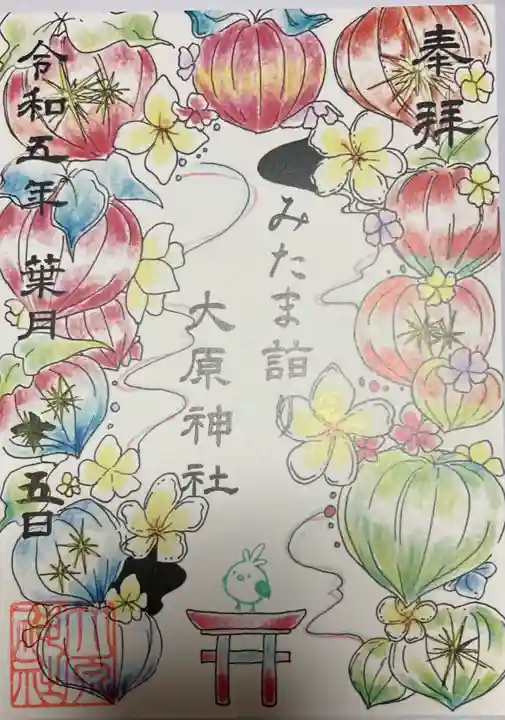 奉拝
みたま詣り
大原神社
令和五年 葉月 十五日